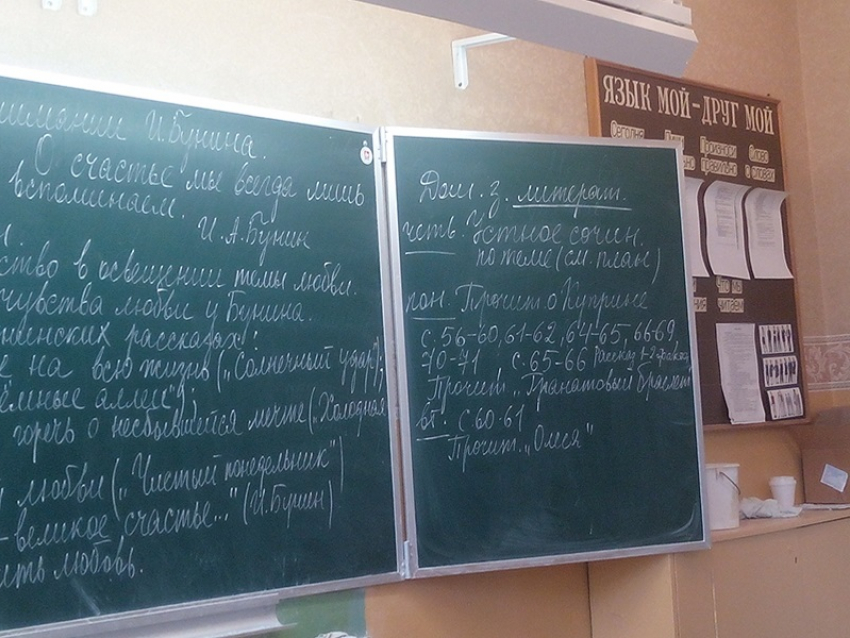 И. Бунина.
О счастье мы всегда лишь
вспоминаем.
И. А. Бунин
в освещении темы любви.
чувства любви у Бунина.
рассказах:
на всю жизнь („Солнечный удар");
аллеи");
горечь о несбывшейся мечте („Холодная
любви („Чистый понедельник")
- великое счастье..." (И. Бунин)
любовь.
Дом. з. литерат.
четв. Устное сочин.
по теме (см. план)
пон. Прочит. о Куприне
с. 56-60, 61-62, 64-65, 66-69
70-71 с. 65-66 Рассказ 1-2
Прочит. „Гранатовый браслет"
вт. с. 60-61
Прочит. „Олеся"
ЯЗЫК МОЙ - ДРУГ МОЙ
Сегодня
Произноси
правильно
Слово
о словах
Что мы
читаем